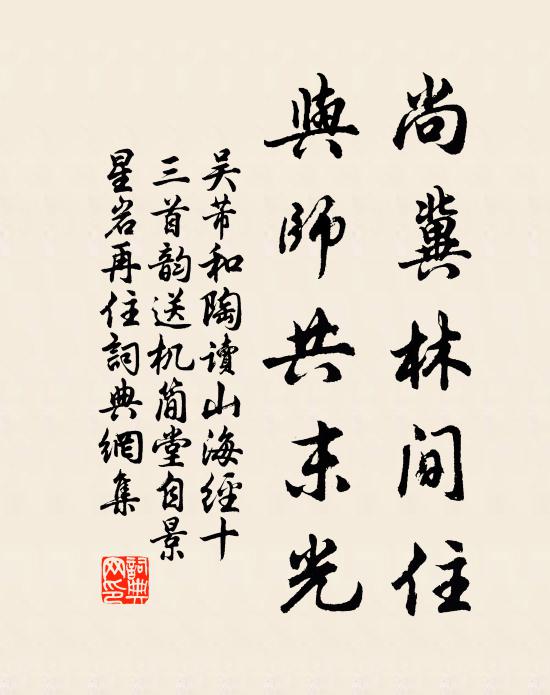 尚冀林间住
與師共末光
吴芾和陶讀山海經十
三首韵送机简堂自景
星岩再住詞典網集
詞典网印